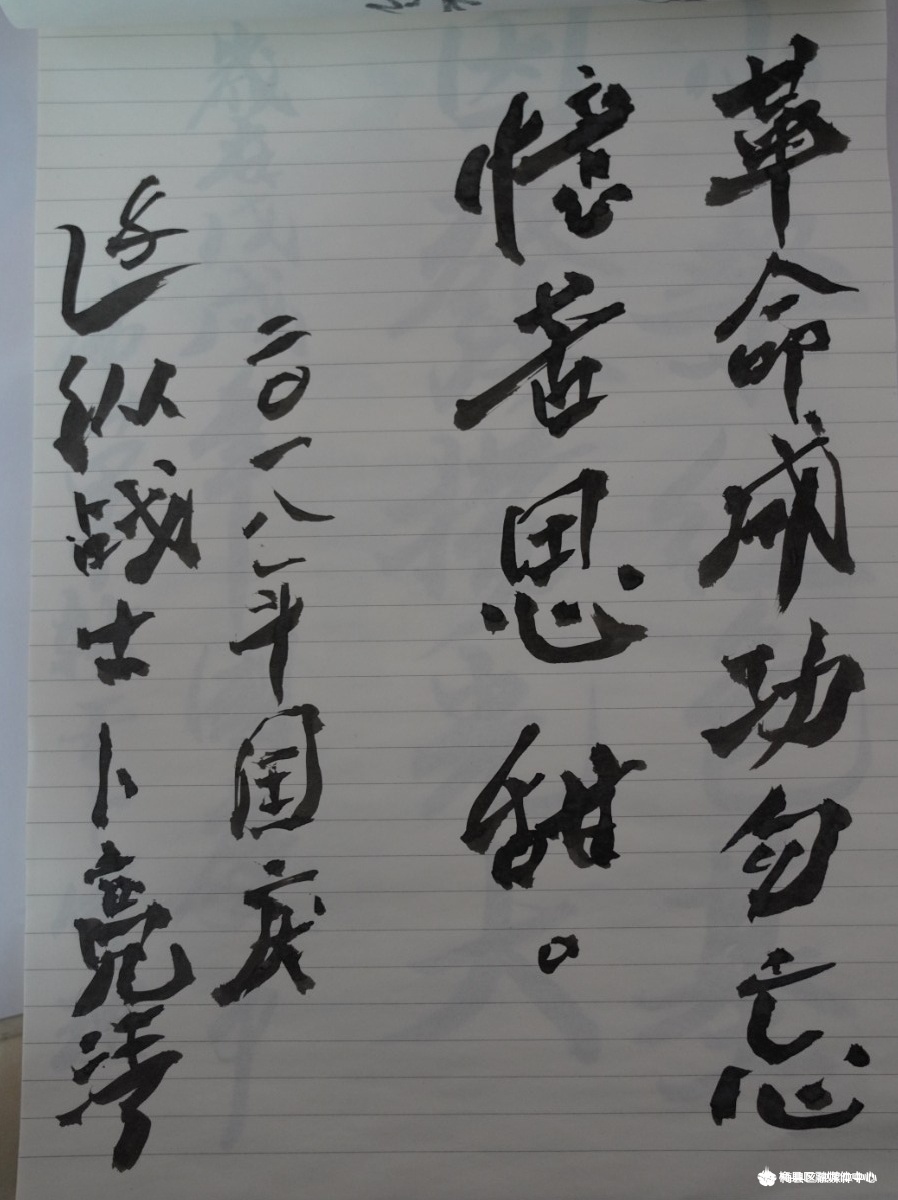 革命成功勿忘
憶苦思甜。
二0一八年国庆
边纵战士卜亮清
梅县区融媒体中心